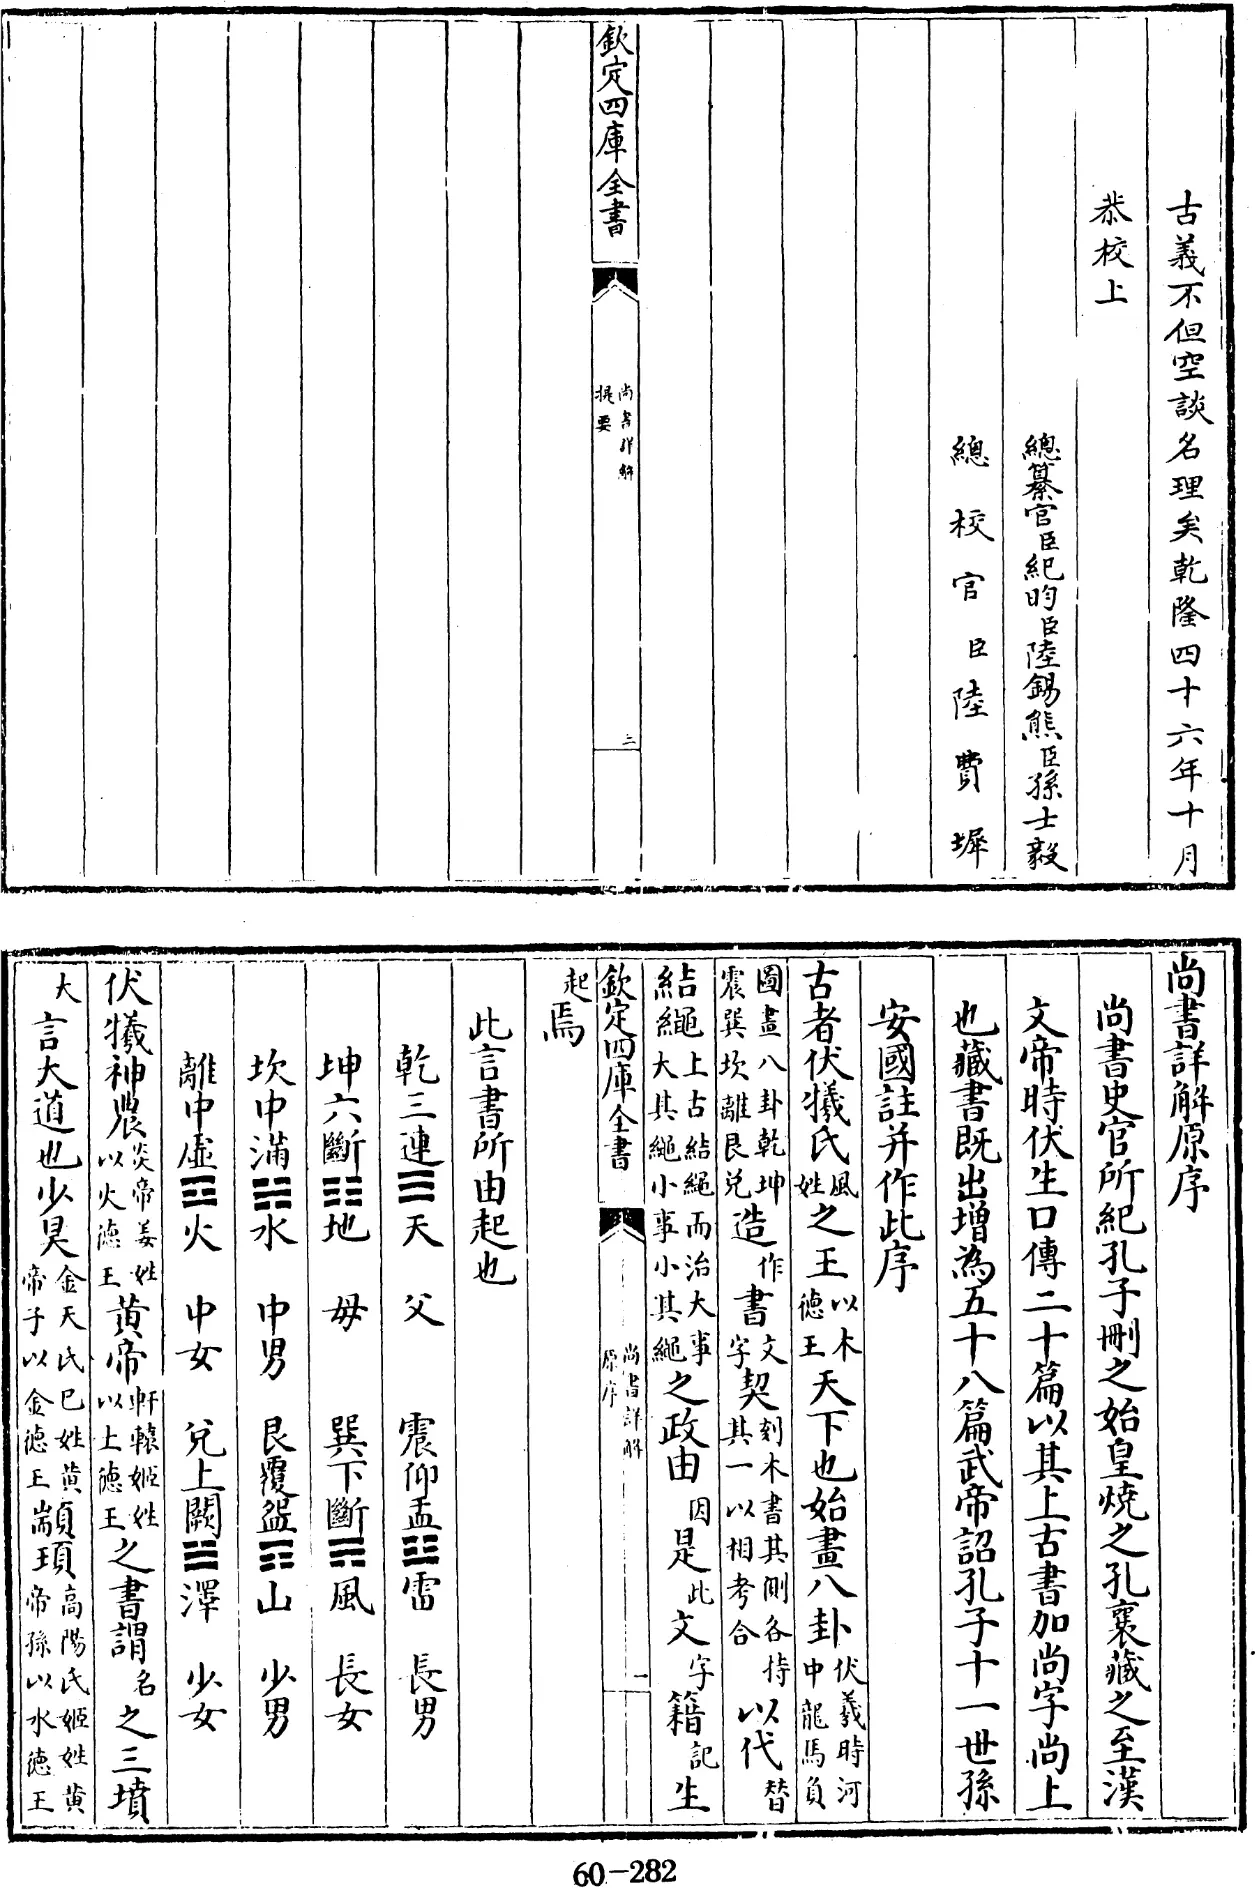 古義不但空談名理矣乾隆四十六年十月
恭校上
總纂官臣紀昀臣陸錫熊臣孫士毅
總校官臣陸費墀
欽定四庫全書
尚書詳解
提要
三
尚書詳解原序
尚書史官所紀孔子刪之始皇燒之孔襄藏之至漢
文帝時伏生口傳二十篇以其上古書加尚字尚上
也藏書既出增為五十八篇武帝詔孔子十一世孫
安國註并作此序
古者伏犧氏風姓之王以木德王天下也始畫八卦伏羲時河中龍馬負
圖畫八卦乾坤震巽坎離艮兌造作書文字契刻木書其側各持其一以相考合以代替
結繩上古結繩而治大事大其繩小事小其繩之政由因是此文字籍記生
欽定四庫全書
尚書詳解
原序
一
起焉
此言書所由起也
乾三連☰天 父 震仰盂☳雷 長男
坤六斷☷地 母 巽下斷☴風 長女
坎中滿☵水 中男 艮覆盌☶山 少男
離中虛☲火 中女 兌上闕☱澤 少女
伏犧神農炎帝姜姓以火德王黃帝軒轅姬姓以土德王之書謂名之三墳
大言大道也少昊金天氏巳姓黃帝子以金德王顓頊高陽氏姬姓黃帝孫以水德王
60-282